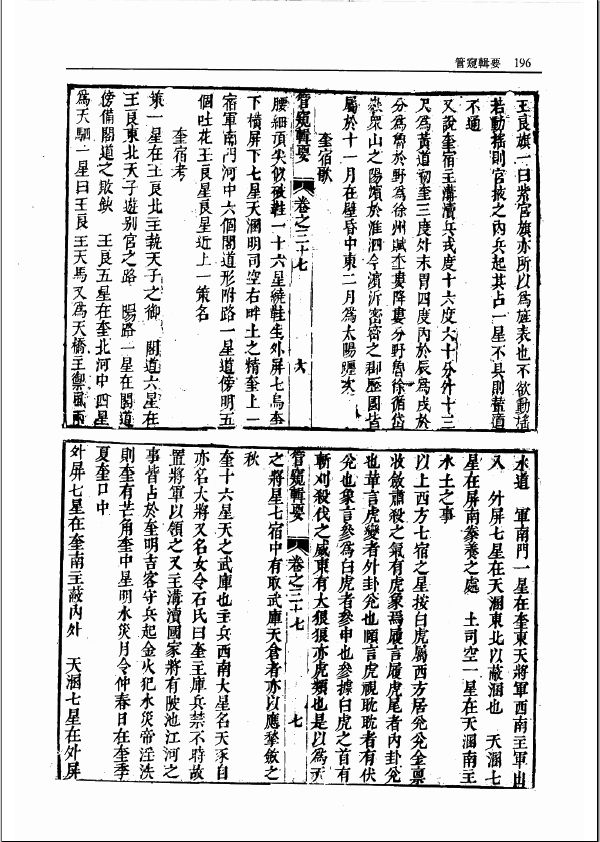 管窺輯要 196
王良旗一曰紫宮旗亦所以為旌表也不欲動搖
若動搖則官掖之內兵起其占一星不具則輦道
不通
又說奎宿主溝瀆兵戎度十六度六十分外十三
尺為黃道初奎三度外末胃四度內於辰為戌於
分為魯於野為徐州賦奎婁降婁分野魯徐循岱
嶽眾山之陽濱於淮泗今濱沂密密之卸歷國皆
屬於十一月在壁昏中東二月為太陽躔次
奎宿歌
管窺輯要 卷之三十七 六
腰細頂尖似破鞋一十六星繞鞋生外屏七烏奎
下橫屏下七星天溷明司空右畔土之精奎上一
宿軍南門河中六個閣道形附路一星道傍明五
個吐花王良星良星近上一策名
奎宿考
策一星在王良北主執天子之御 閣道六星在
王良東北天子遊別宮之路 賜路一星在閣道
傍備閣道之敗缺 王良五星在奎北河中四星
為天駟一星曰王良王天馬又為天橋主禦風雨
水道 軍南門一星在奎東天將軍西南主軍出
入 外屏七星在天溷東北以蔽溷也 天溷七
星在屏南拳養之處 土司空一星在天溷南主
水土之事
以上西方七宿之星按白虎屬西方居兌兌金稟
收斂肅殺之氣有虎象焉履言履虎尾者內卦兌
也革言虎變者外卦兌也頤言虎視耽耽者有伏
兌也眾言參為白虎者參申也參據白虎之首有
斬刈殺伐之威東有大狼狼亦虎類也是以為天
管窺輯要 卷之三十七 七
之將星七宿中有取武庫天倉者亦以應揫斂之
秋
奎十六星天之武庫也主兵西南大星名天豕目
亦名大將又名女令石氏曰奎主庫兵禁不時故
置將軍以領之又主溝瀆國家將有陂池江河之
事皆占於奎明吉客守兵起金火犯水災帝淫泆
則奎有芒角奎中星明水災月令仲春日在奎季
夏奎口中
外屏七星在奎南主蔽內外 天溷七星在外屏